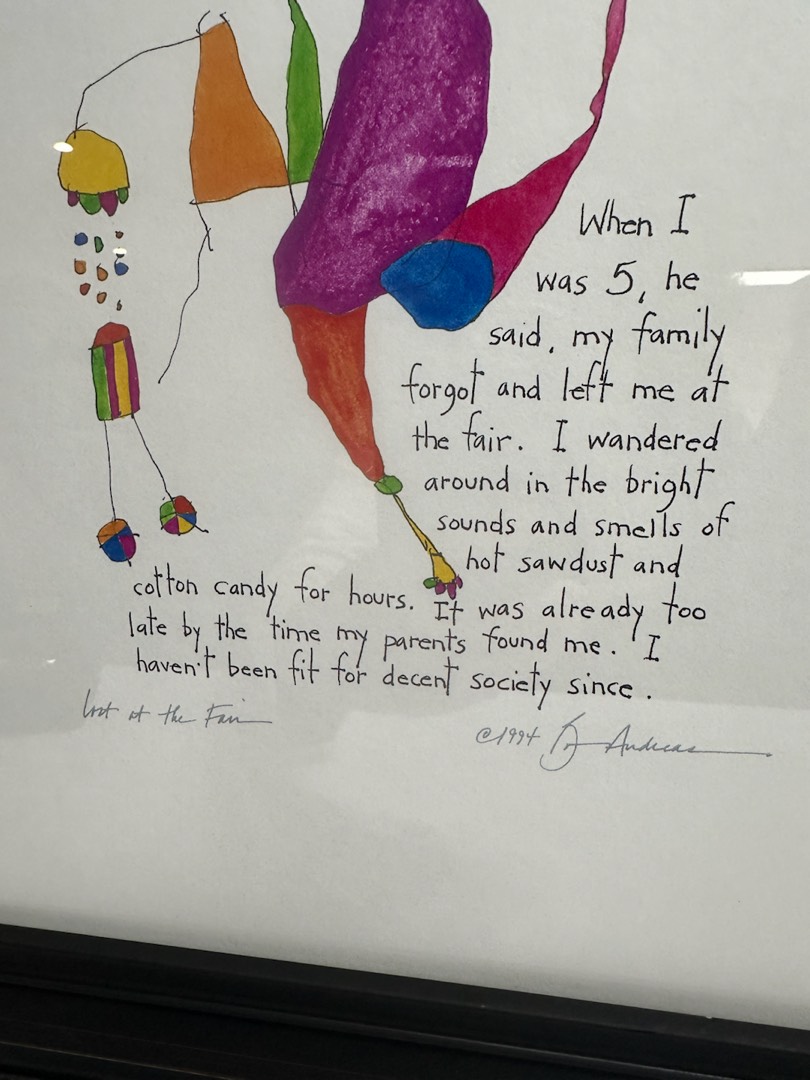 When I
was 5, he
said, my family
forgot and left me at
the fair. I wandered
around in the bright
sounds and smells of
hot sawdust and
cotton candy for hours. It was already too
late by the time my parents found me. I
haven't been fit for decent society since.
Lost at the Fair
©1994 Andreas